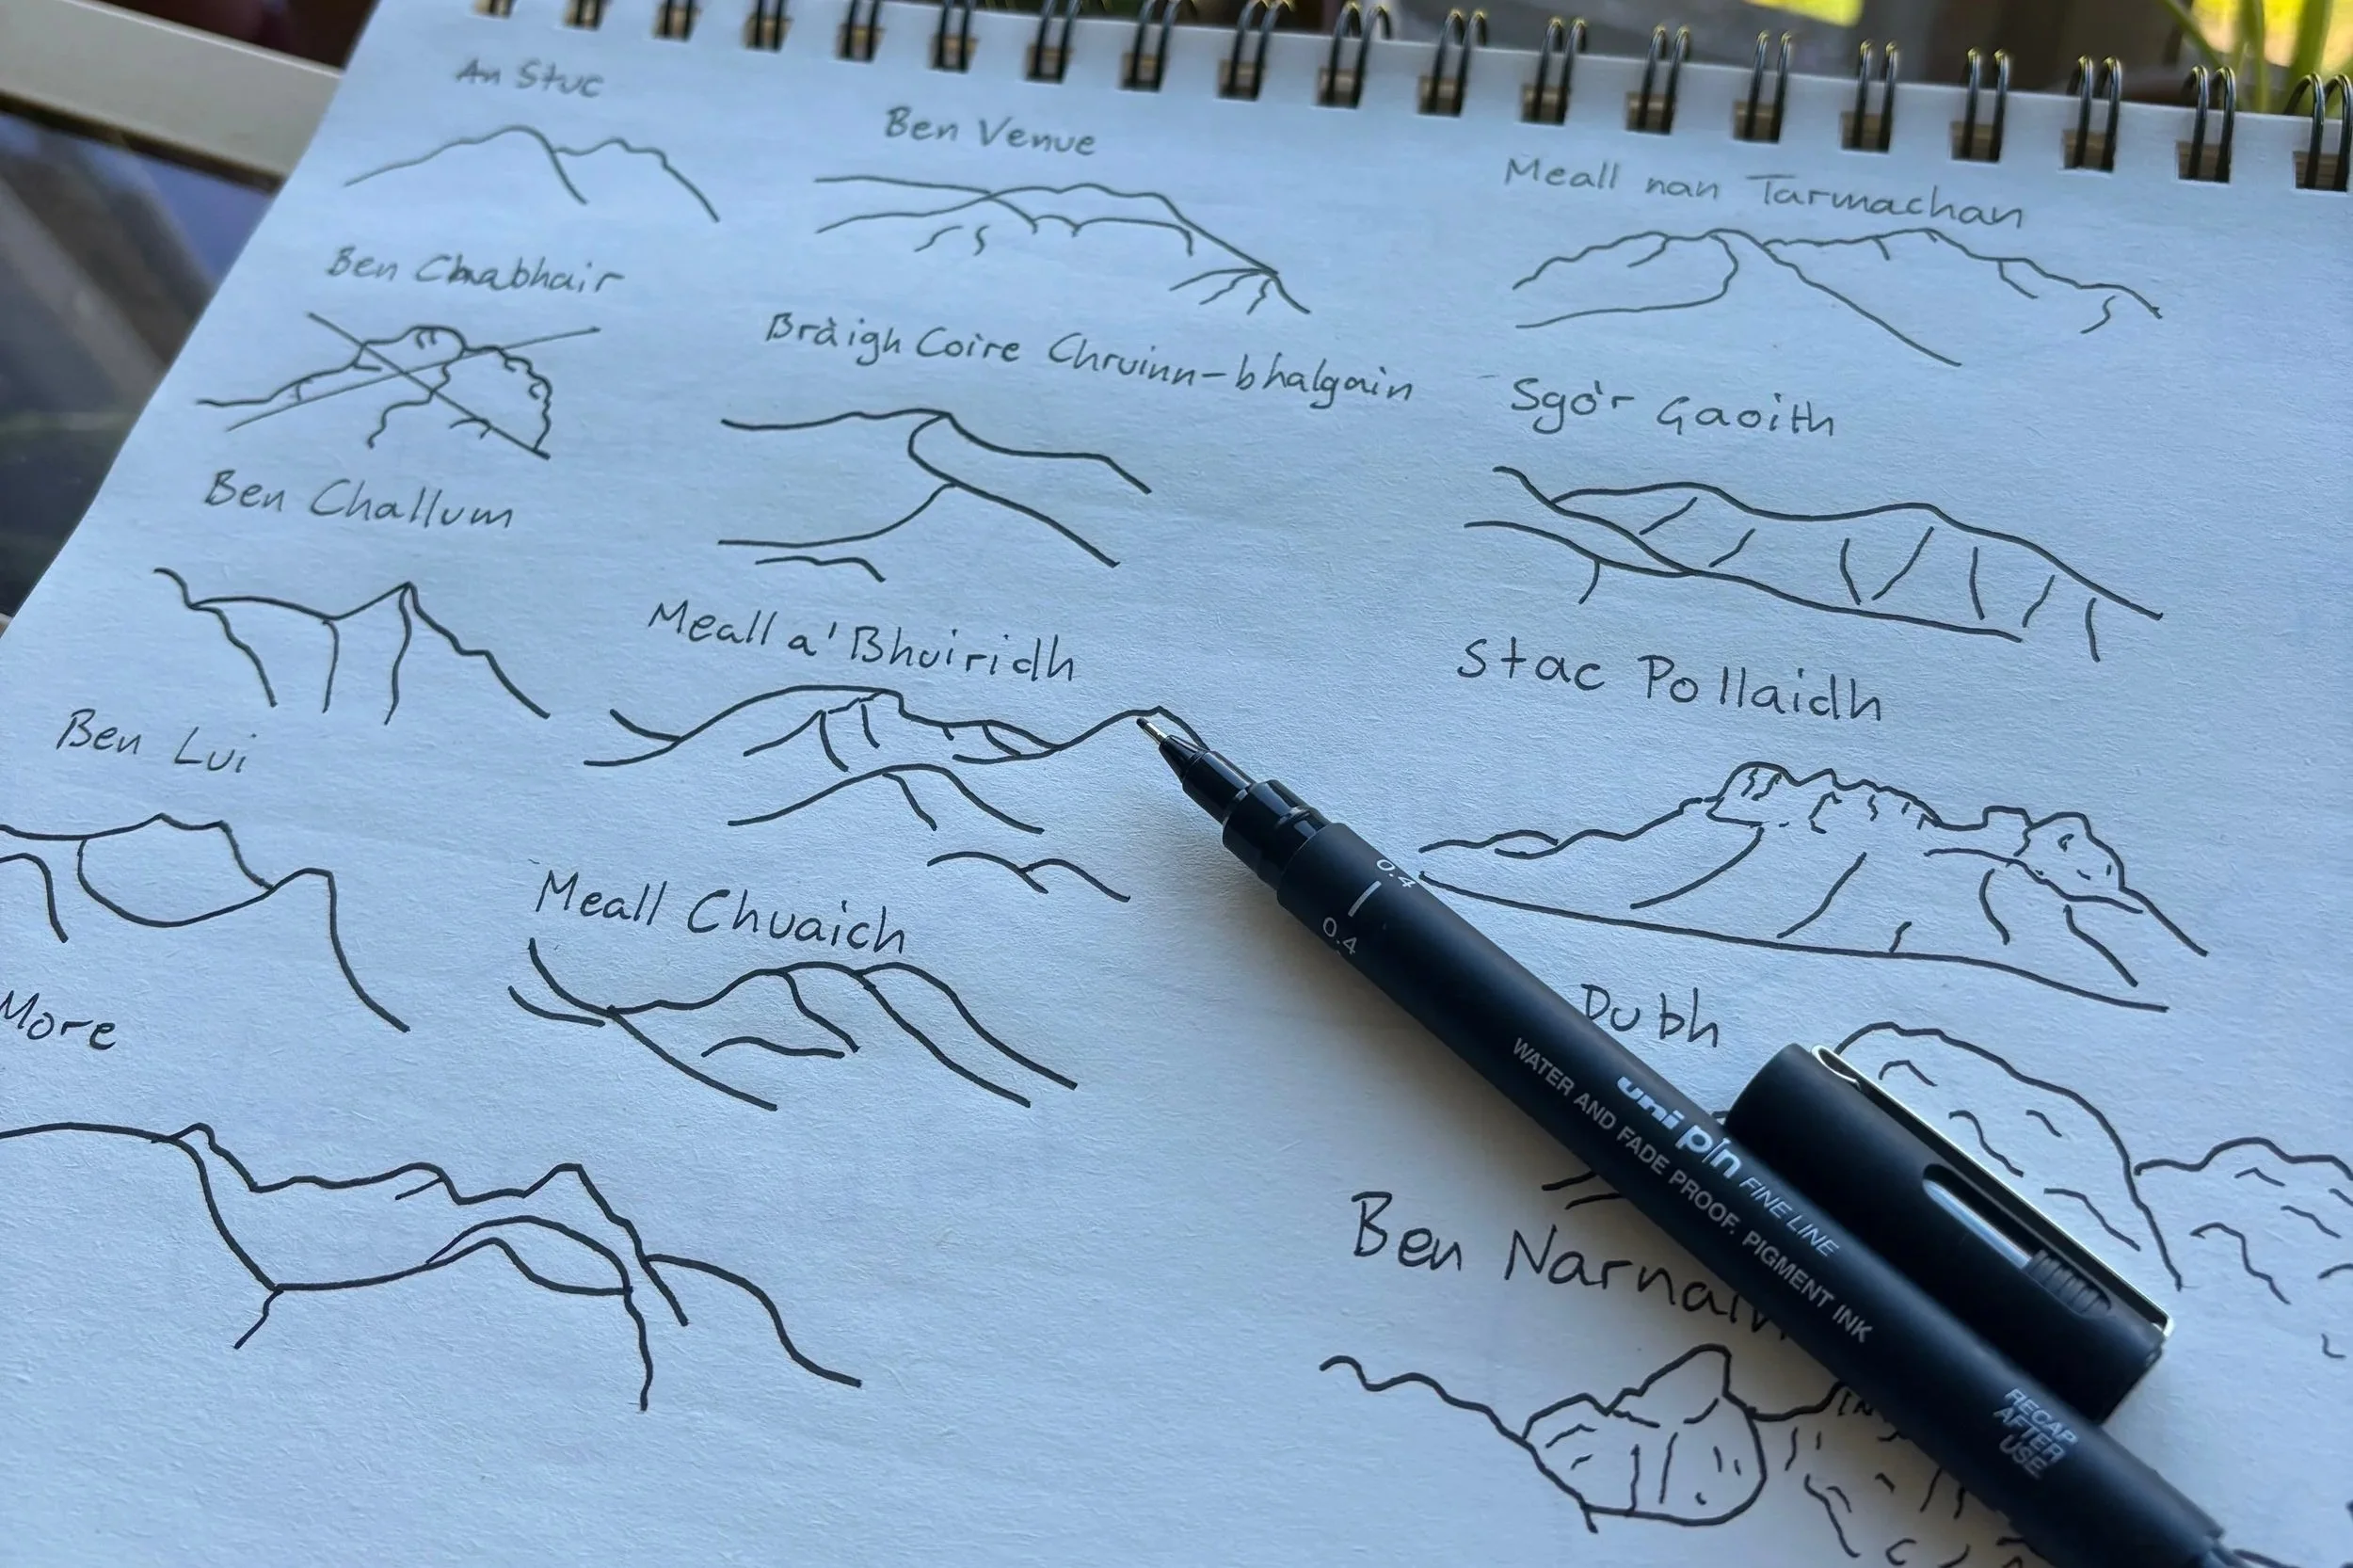 An Stuc
Ben Venue
Meall nan Tarmachan
Ben Chabhair
Bràigh Coire Chruinn-bhalgain
Sgòr Gaoith
Ben Challum
Meall a' Bhuiridh
Stac Pollaidh
Ben Lui
Meall Chuaich
More
Dubh
Ben Narnain
0.4
0.4
uni pin FINE LINE
WATER AND FADE PROOF. PIGMENT INK
RECAP
AFTER
USE